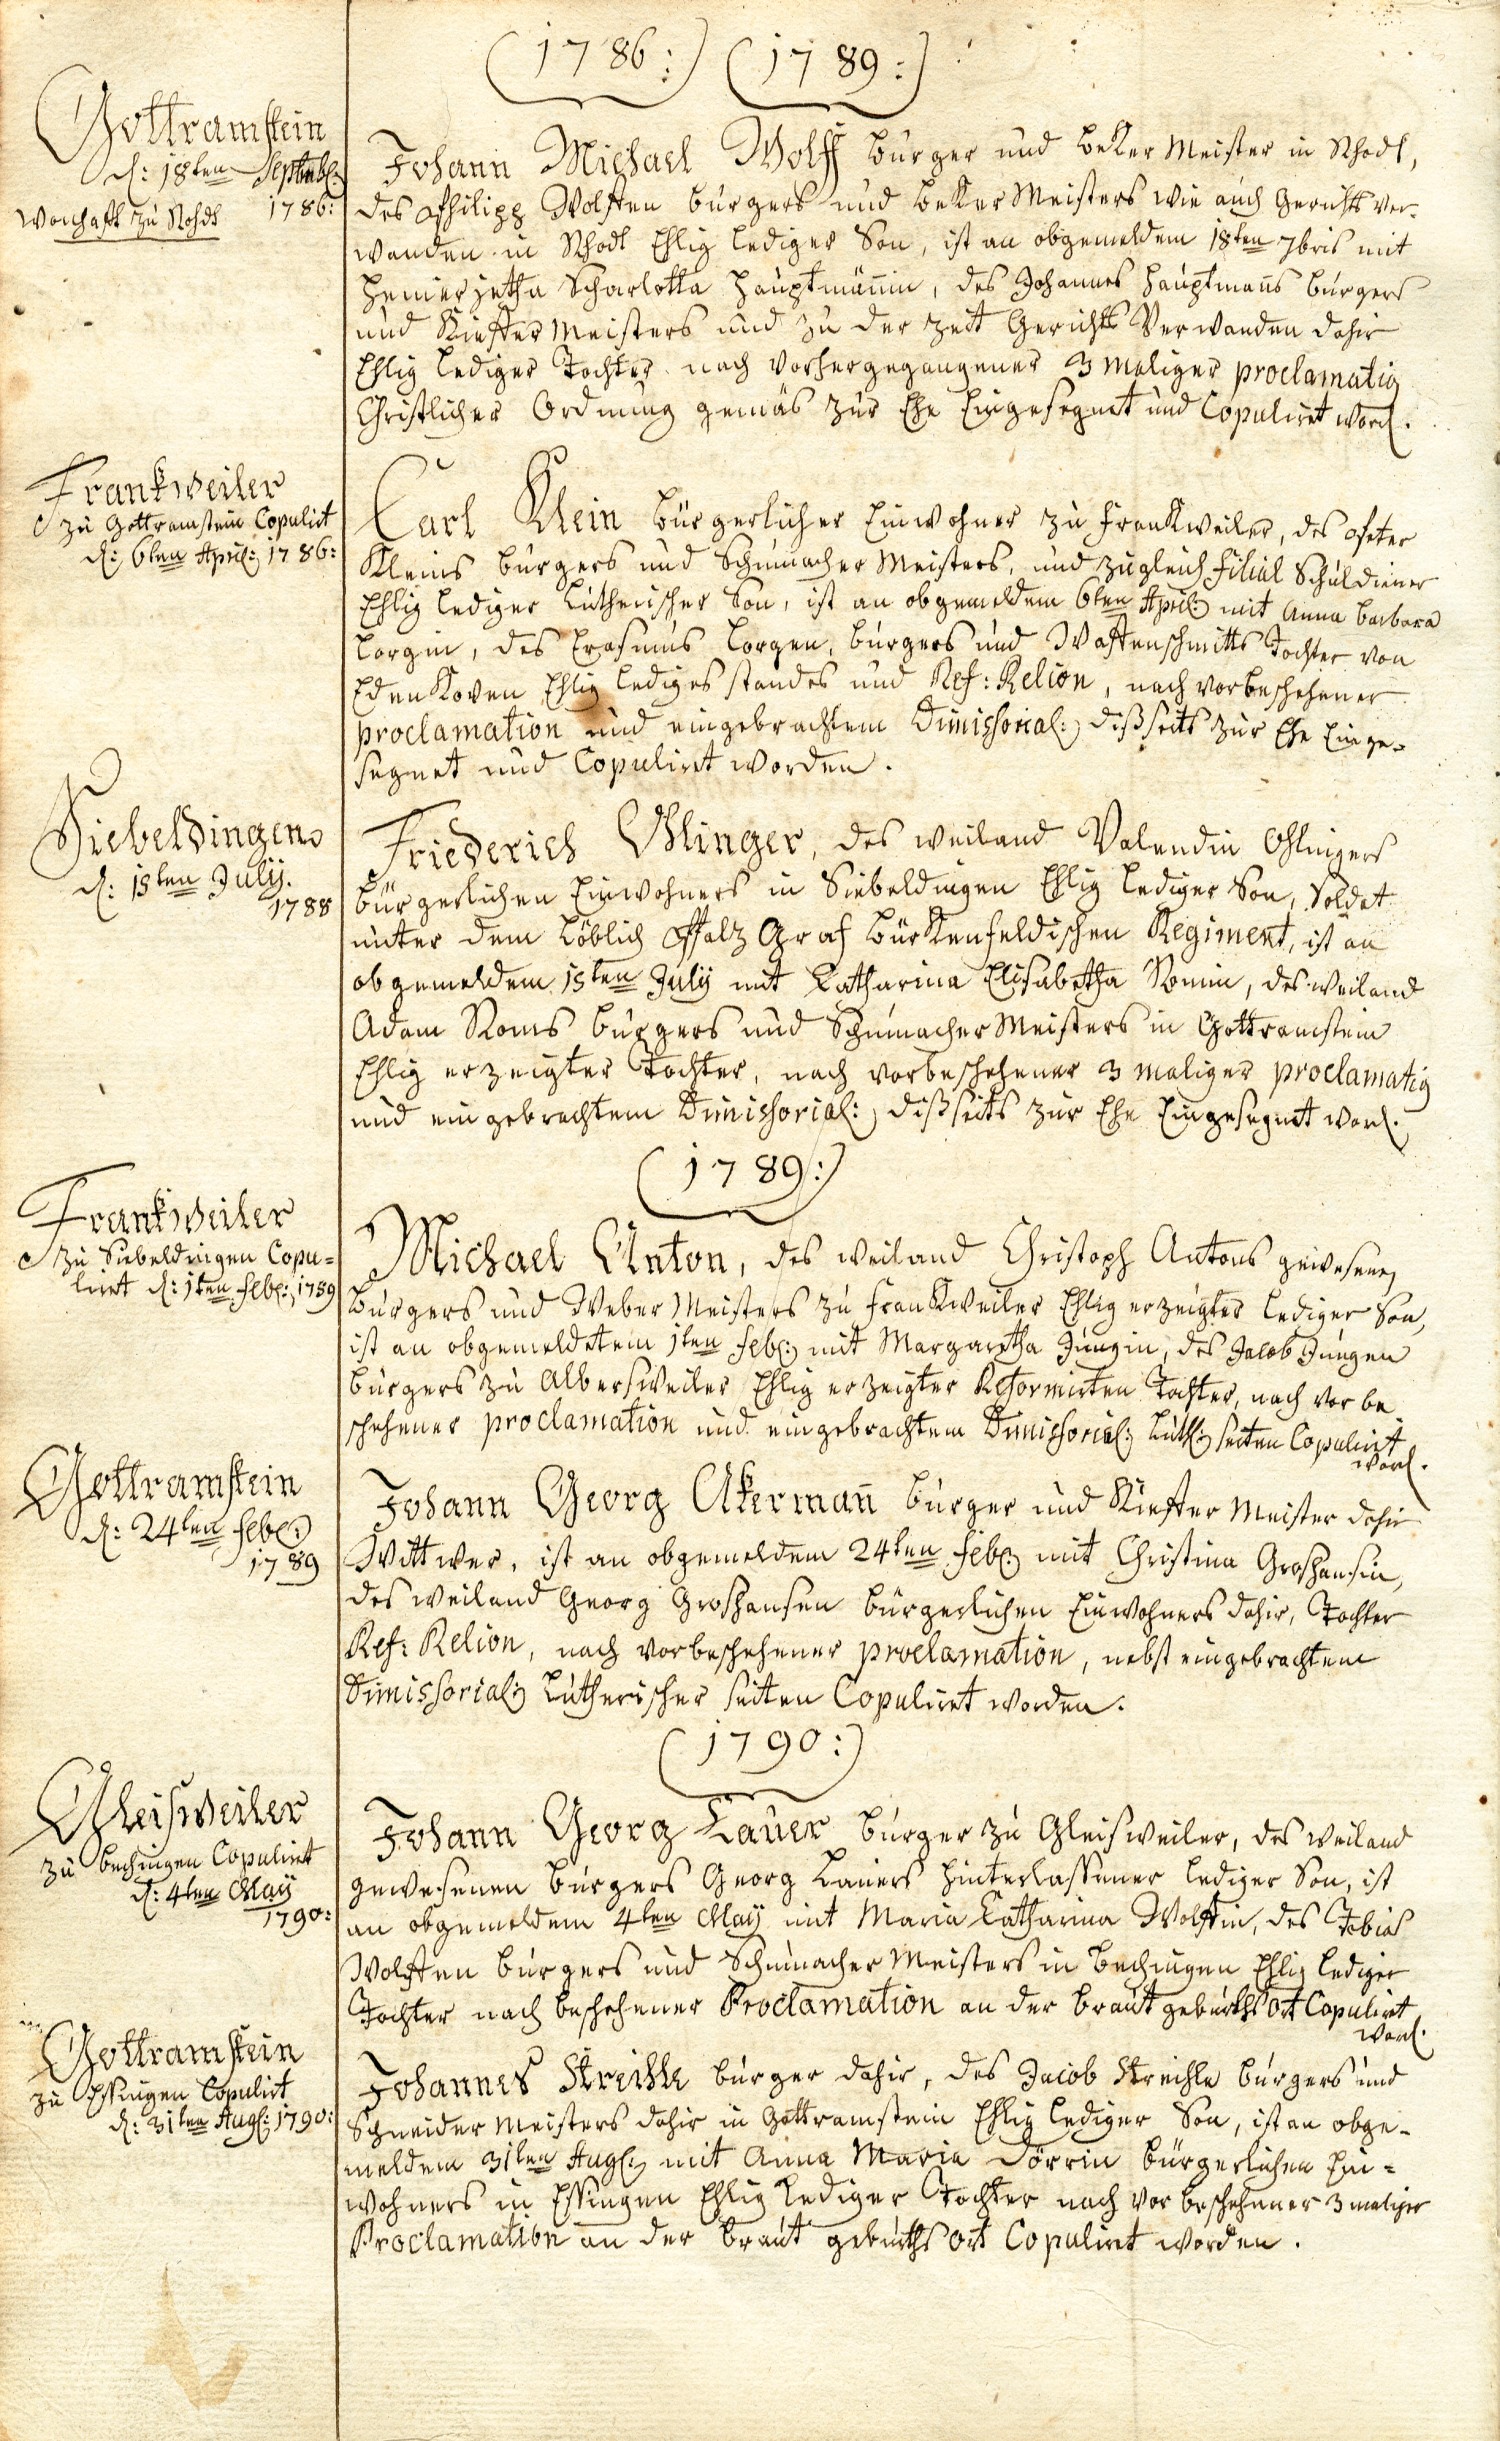 (1786:) (1789:)
Gottramstein
d: 18ten Septembl:
1786:
wonhafft zu Rohdt
Johann Michael Wolff bürger und beKer Meister in Rhodt,
des Philipp Wolffen bürgers und beKer Meisters wie auch Gerichts Ver-
wanden in Rhodt Ehlig lediger Son, ist an obgemeldem 18ten 7bris mit
Henierjetha Scharlotta Hauptmännin, des Johannes Hauptmanns bürgers
und Kieffer Meisters und zu der zeit Gerichts Verwanden dahir
Ehlig lediger Tochter nach vorhergegangener 3 maliger proclamatio
Christlicher Ordnung gemäs zur Ehe Eingesegnet und Copuliret word.
Frankweiler
zu Gottramstein Copulirt
d: 6ten April: 1786:
Carl Klein bürgerlicher Einwohner zu FranKweiler, des Peter
Kleins bürgers und Schumacher Meisters, und zugleich Filial Schuldiener
Ehlig lediger Lutherischer Son, ist an obgemeldem 6ten April: mit Anna barbara
Lorgin, des Erasmus Lorgen, bürgers und Waffenschmitts Tochter von
EdenKoven Ehlig lediges standes und Ref: Relion, nach vorbeschehener
proclamation und eingebrachtem Dimissorial: dißseits zur Ehe Einge-
segnet und Copuliret worden.
Siebeldingen
d: 15ten Julij.
1788
Friederich Ohlinger, des weiland Valendin Ohlingers
bürgerlichen Einwohners in Siebeldingen Ehlig lediger Son, Soldat
unter dem Löblich Pfalz Graf BürKenfeldischen Regiment, ist an
obgemeldem 15ten Julij mit Catharina Elisabetha Romin, des weiland
Adam Roms bürgers und Schumacher Meisters in Gottramstein
Ehlig erzeigter Tochter, nach vorbeschehener 3 maliger proclamatio
und eingebrachtem Dimissorial: dißseits zur Ehe Eingesegnet word.
(1789:)
Frankweiler
zu Siebeldingen Copu=
liret d: 1ten Feb: 1789
Michael Anton, des weiland Christoph Antons gewesenen
bürgers und Weber Meisters zu FranKweiler Ehlig erzeigter lediger Son,
ist an obgemeldetem 1ten Feb: mit Margaretha Jungin, des Jacob Jungen
bürgers zu Albersweiler Ehlig erzeigter Reformirten Tochter, nach vor be
schehener proclamation und eingebrachtem Dimissorial: Luth: seiten Copulirt
word.
Gottramstein
d: 24ten Feb:
1789
Johann Georg Akermann bürger und Kieffer Meister dahir
Wittwer, ist an obgemeldem 24ten Feb: mit Christina Groshansin,
des weiland Georg Groshansen bürgerlichen Einwohners dahir, Tochter
Ref: Relion, nach vorbeschehener proclamation, nebst eingebrachtem
Dimissorial: Lutherischer seiten Copuliret worden.
(1790:)
Gleisweiler
zu bechingen Copuliret
d: 4ten May
1790:
Johann Georg Lauer bürger zu Gleisweiler, des weiland
gewesenen bürgers Georg Lauers hinterlassener lediger Son, ist
an obgemeldem 4ten May mit Maria Catharina Wolffin, des Tobias
Wolffen bürgers und Schumacher Meisters in bechingen Ehlig lediger
Tochter nach beschehener Proclamation an der braut geburths Ort Copuliret
word.
Gottramstein
zu Essingen Copulirt
d: 31ten Aug: 1790:
Johannes Streichle bürger dahir, des Jacob Streichle bürgers und
Schneider Meisters dahir in Gottramstein Ehlig lediger Son, ist an obge-
meldem 31ten Aug: mit Anna Maria Dörrin bürgerlichen Ein=
wohners in Essingen Ehlig lediger Tochter nach vor beschehener 3 maliger
Proclamation an der braut geburths Ort Copuliret worden.